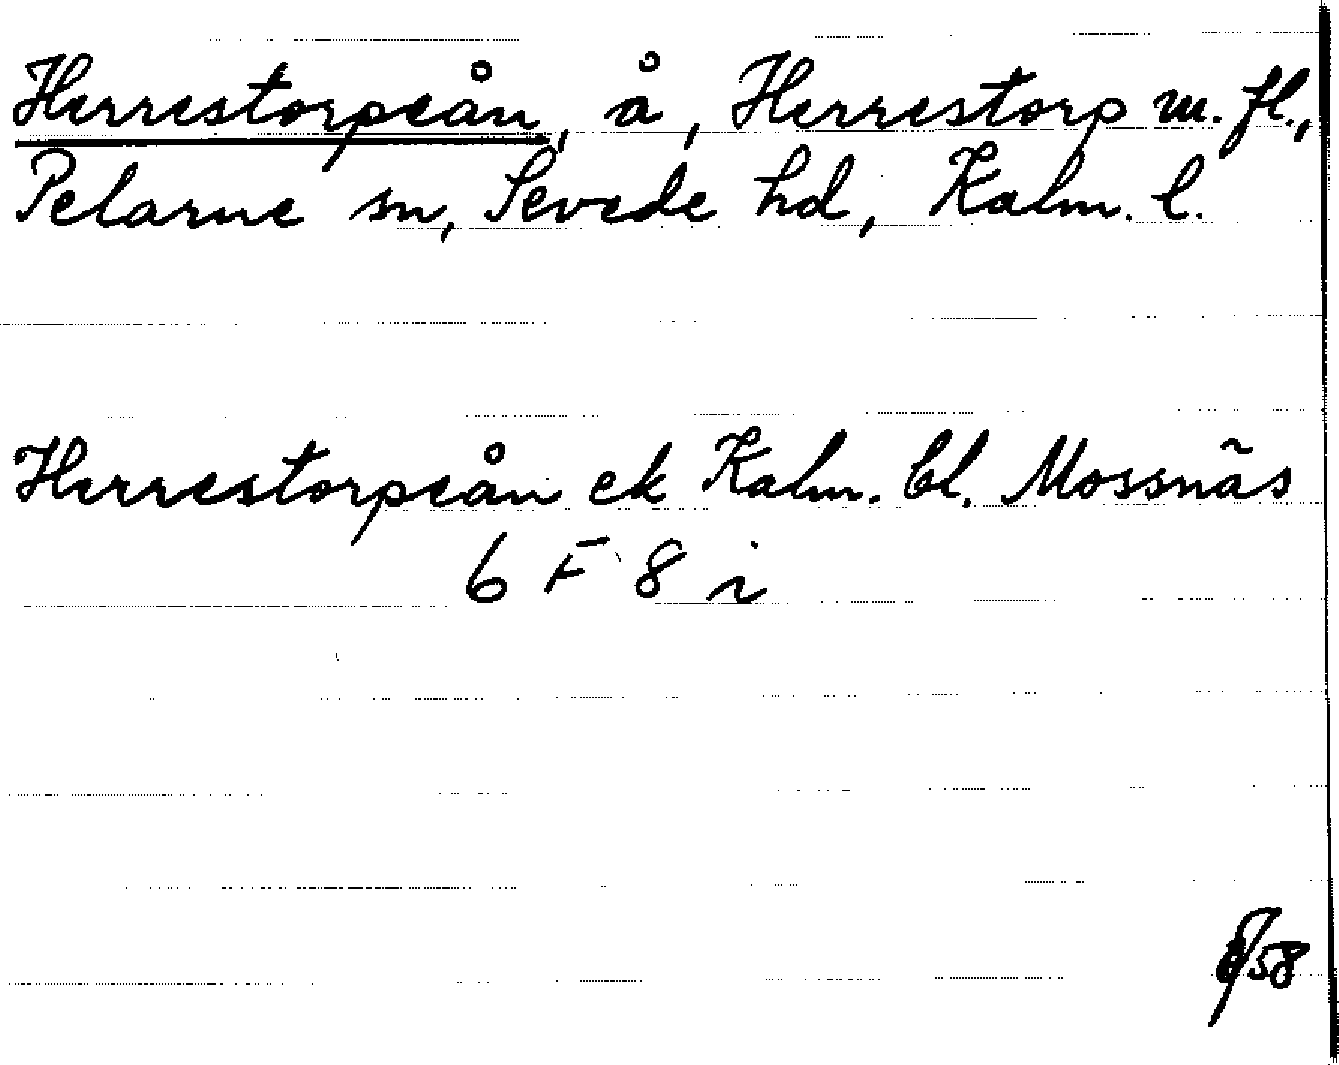 Herrestorpeån, å, Herrestorp m.fl.,
Pelarne sn, Sevede hd, Kalm. l.
Herrestorpeån ek Kalm. bl. Mossnäs
6 F 8 i